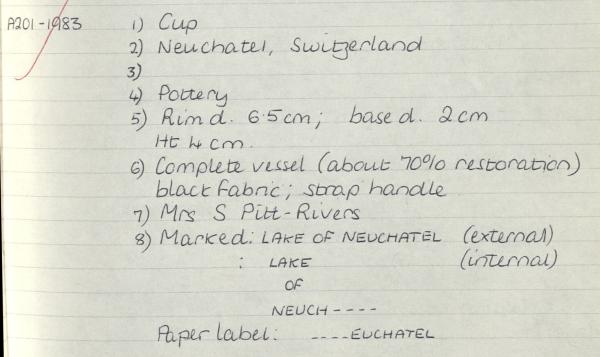 A201-1983 1) Cup
2) Neuchatel, Switzerland
3)
4) Pottery
5) Rim d. 6.5cm; base d. 2cm
Ht 4 cm.
6) Complete vessel (about 70% restoration)
black fabric; strap handle
7) Mrs S Pitt-Rivers
8) Marked: LAKE OF NEUCHATEL (external)
: LAKE (internal)
OF
NEUCH----
Paper label: ----EUCHATEL